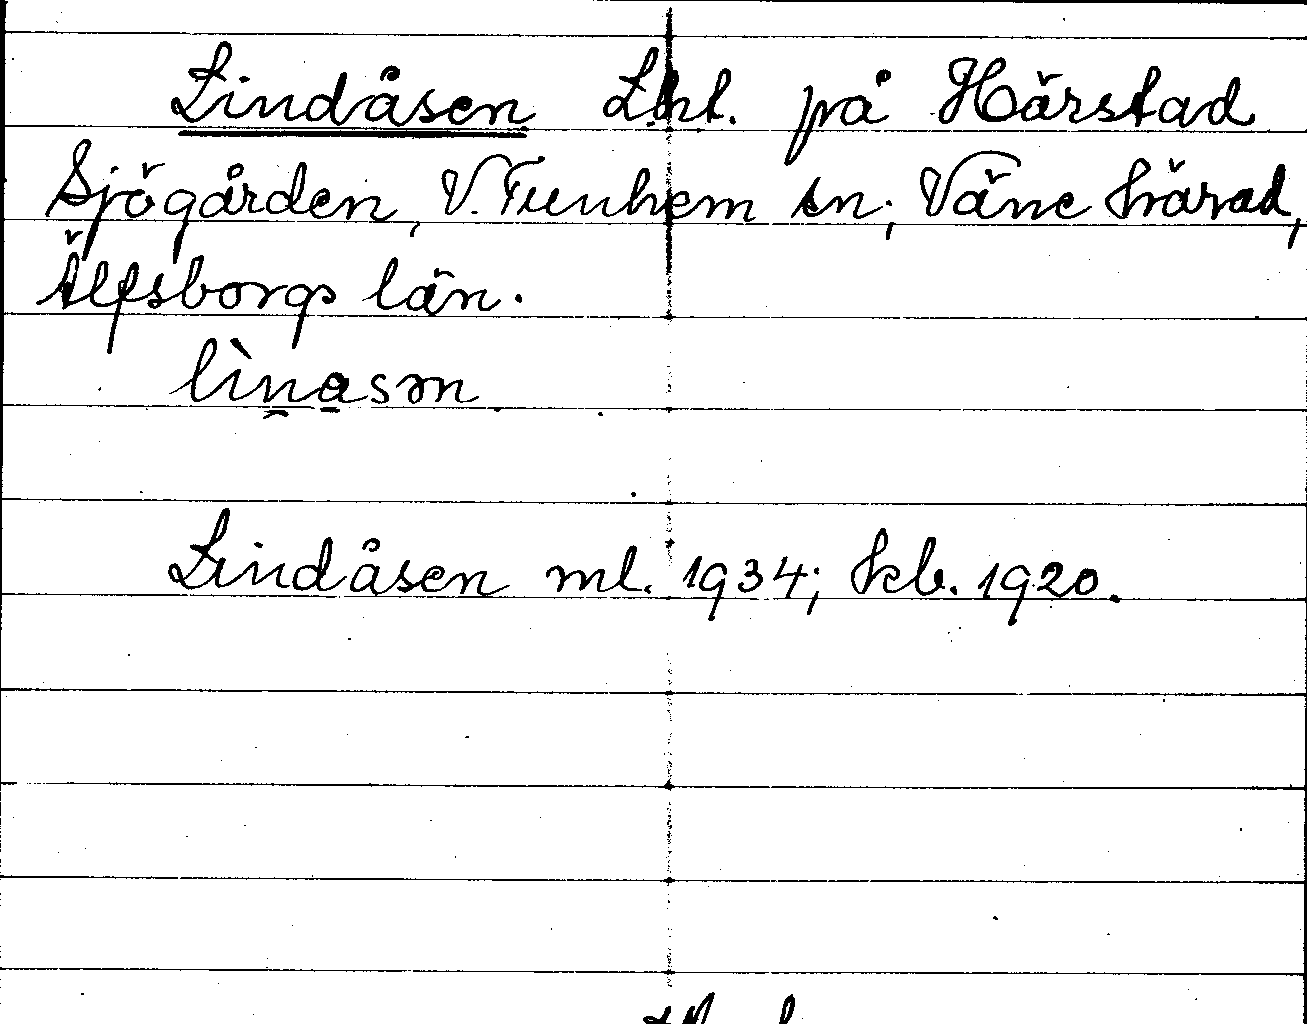 Lindåsen Lht. på Härstad
Sjögården, V. Tunhem sn; Väne härad,
Älfsborgs län.
lìnasən
Lindåsen ml. 1934; kb. 1920.